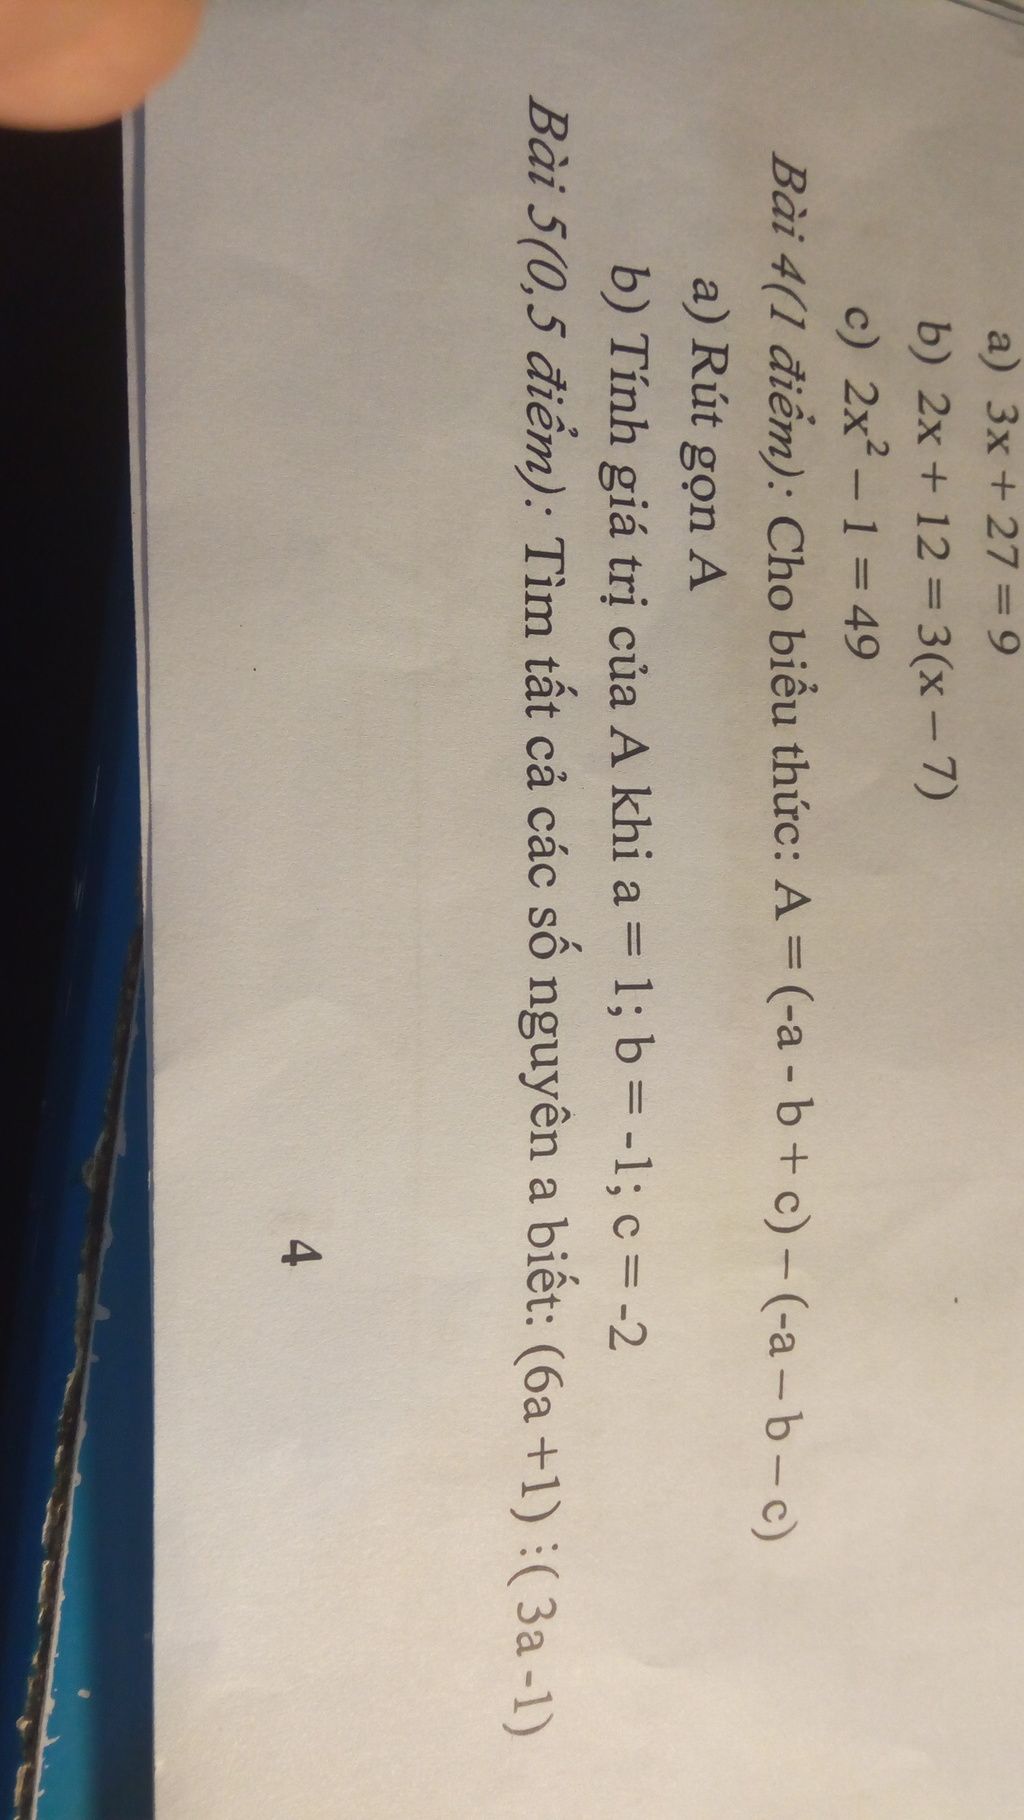 a) 3x + 27 = 9
b) 2x + 12 = 3(x – 7)
c) 2x² – 1 = 49
Bài 4(1 điểm): Cho biểu thức: A = (-a - b + c) – (-a – b – c)
a) Rút gọn A
b) Tính giá trị của A khi a = 1; b = -1; c = -2
Bài 5(0,5 điểm): Tìm tất cả các số nguyên a biết: (6a +1) ⋮ ( 3a -1)
4